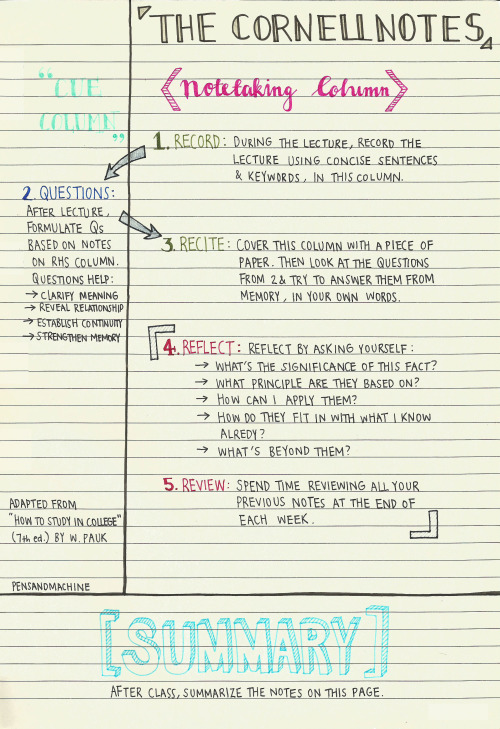 THE CORNELLNOTES
"CUE
COLUMN"
Notetaking Column
1. RECORD: DURING THE LECTURE, RECORD THE
LECTURE USING CONCISE SENTENCES
& KEYWORDS, IN THIS COLUMN.
2. QUESTIONS:
AFTER LECTURE,
FORMULATE QS
BASED ON NOTES
ON RHS COLUMN.
QUESTIONS HELP:
→ CLARIFY MEANING
→ REVEAL RELATIONSHIP
→ ESTABLISH CONTINUITY
→ STRENGTHEN MEMORY
3. RECITE: COVER THIS COLUMN WITH A PIECE OF
PAPER. THEN LOOK AT THE QUESTIONS
FROM 2 & TRY TO ANSWER THEM FROM
MEMORY, IN YOUR OWN WORDS.
4. REFLECT: REFLECT BY ASKING YOURSELF:
→ WHAT'S THE SIGNIFICANCE OF THIS FACT?
→ WHAT PRINCIPLE ARE THEY BASED ON?
→ HOW CAN I APPLY THEM?
→ HOW DO THEY FIT IN WITH WHAT I KNOW
ALREDY?
→ WHAT'S BEYOND THEM?
5. REVIEW: SPEND TIME REVIEWING ALL YOUR
PREVIOUS NOTES AT THE END OF
EACH WEEK.
ADAPTED FROM
"HOW TO STUDY IN COLLEGE"
(7th ed.) BY W. PAUK
PENSANDMACHINE
[SUMMARY]
AFTER CLASS, SUMMARIZE THE NOTES ON THIS PAGE.